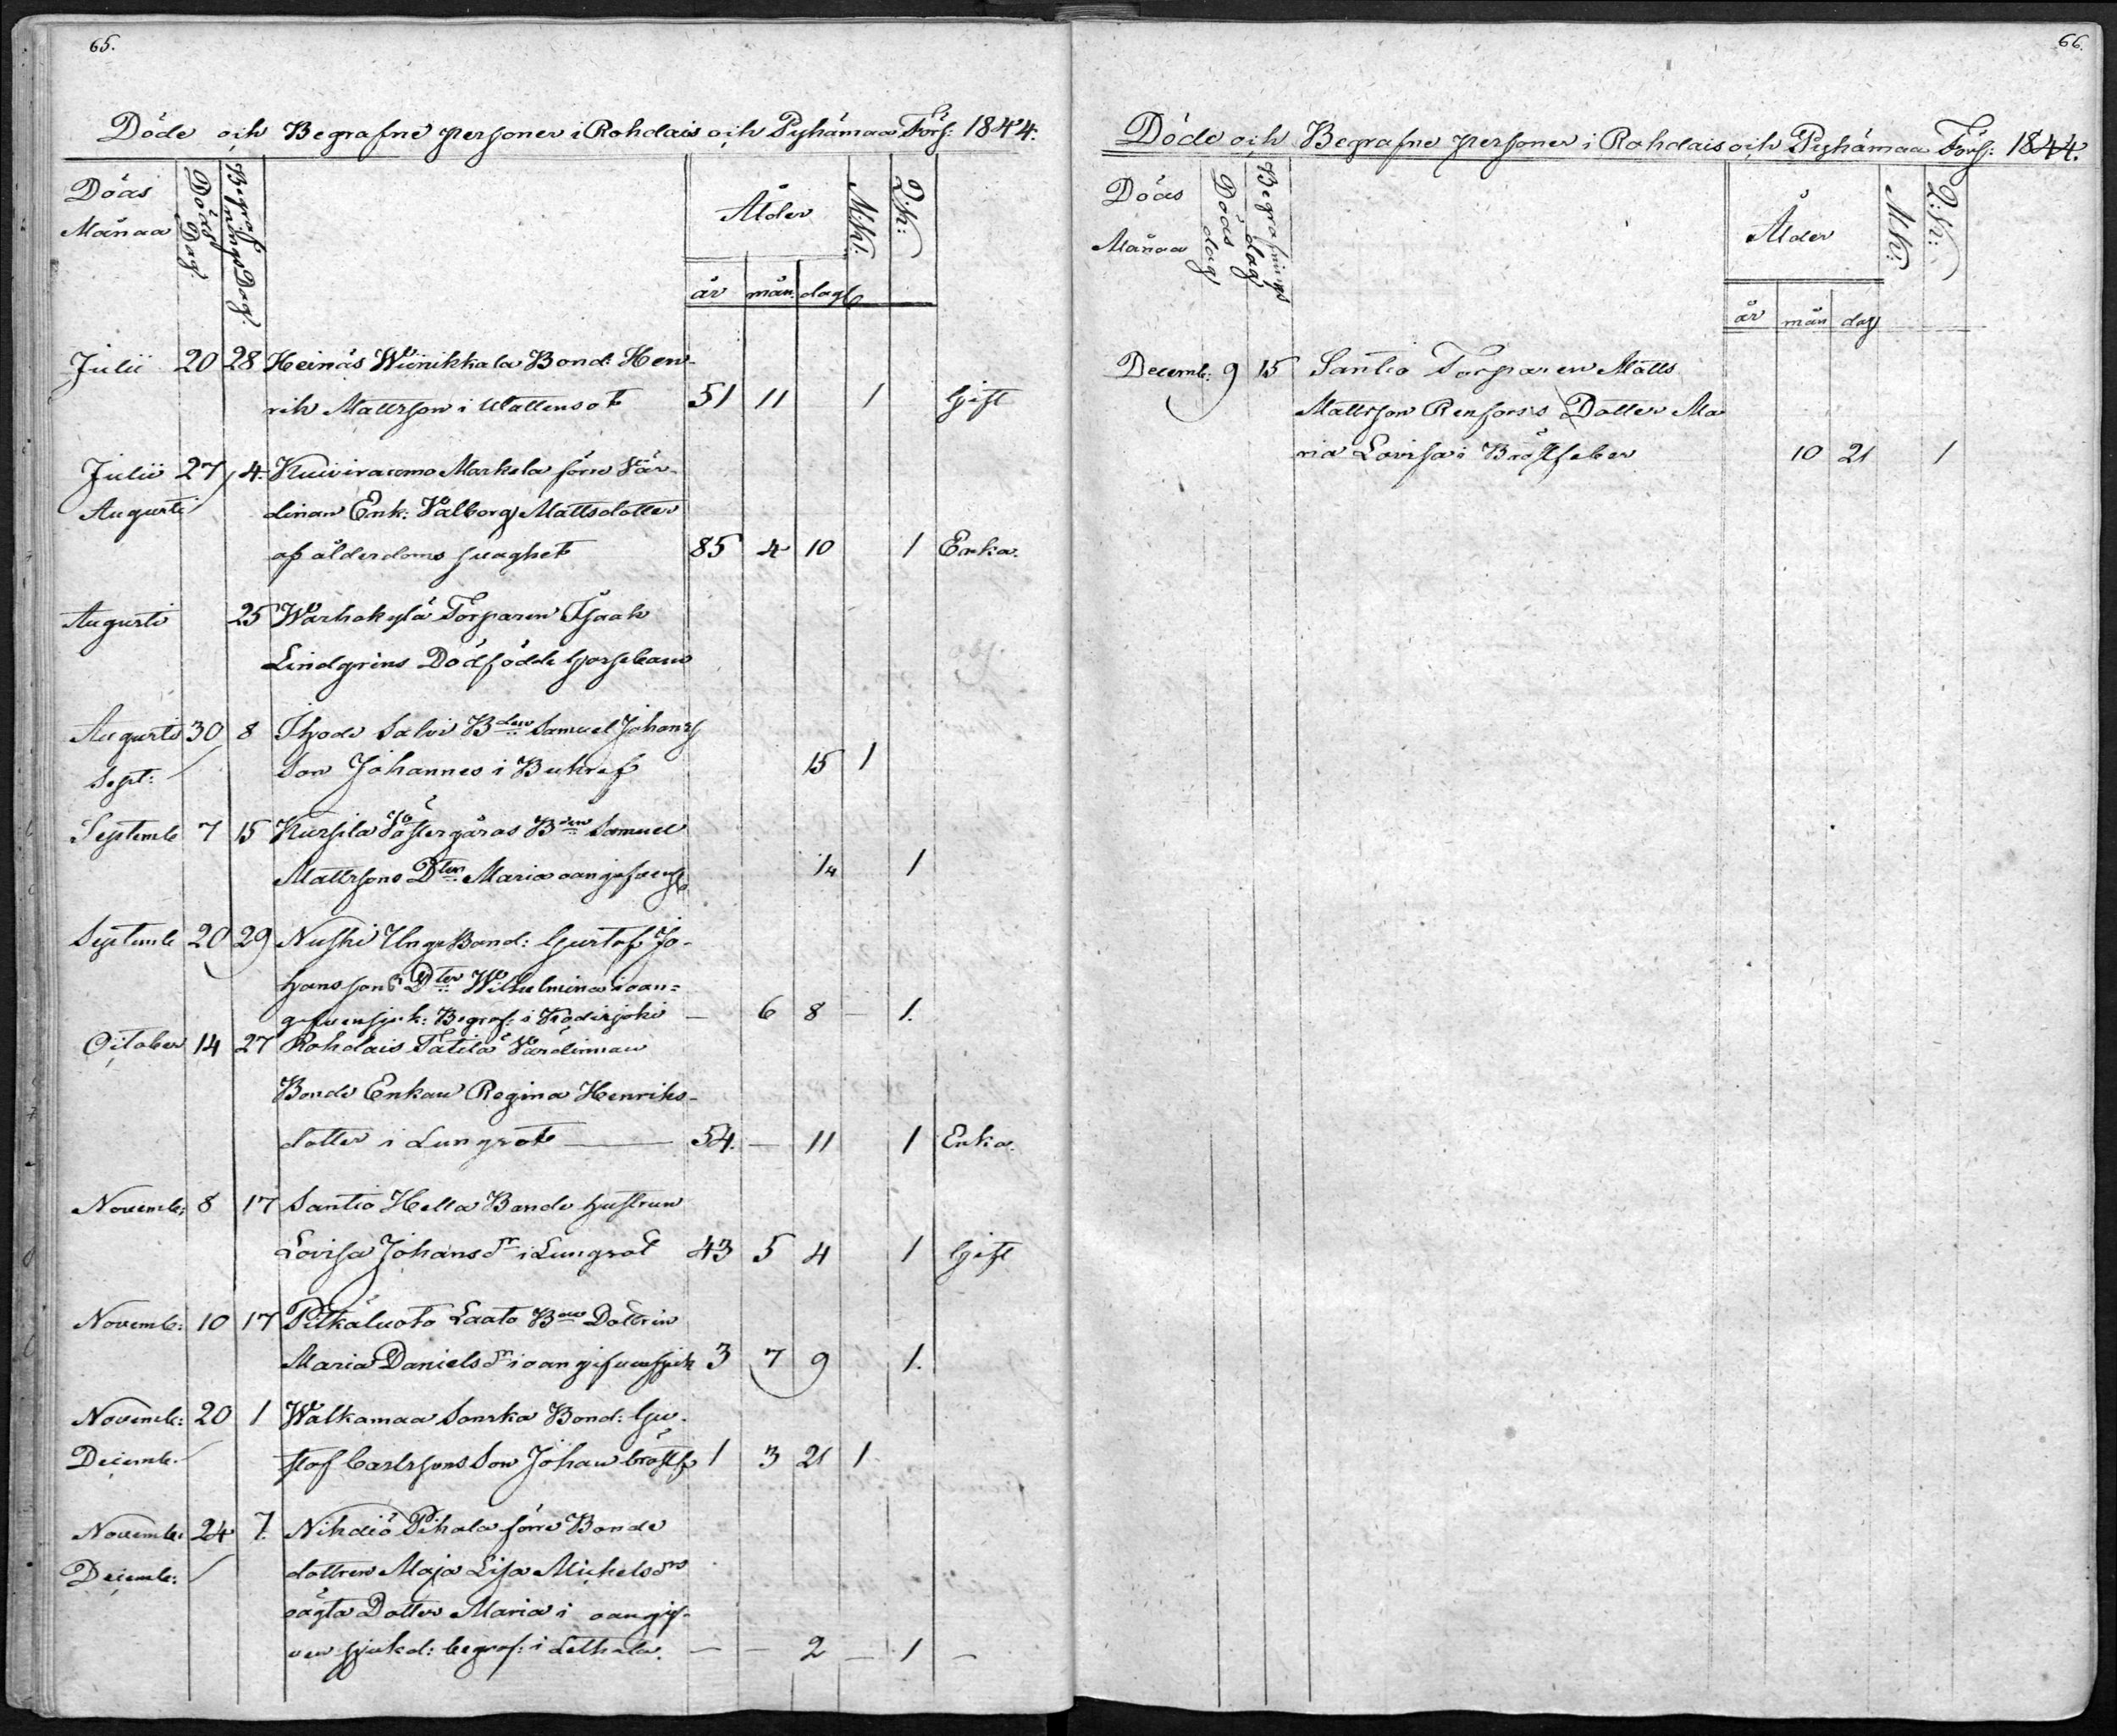 65.
Döde och Begrafne personer i Rohdais och Pyhämaa Förs: 1844.
Döds Månad
Döds Dag.
Begrafnings Dag.
Ålder
M.k:
Q.k:
år mån. dag
Julii 20 28 Heinäs Winikkala Bond: Hen-
rik Mattsson i Wattensot 51 11 1 Gift
Julii 27 / 4. Kuivirauma Markula förre Vär-
Augusti dinnan Enk: Valborg Mattsdotter
af ålderdoms svaghet 85 4 10 1 Enka.
Augusti 25 Warhokylä Torparen Isaak
Lindgrens Dödfödde Gossebarn
Augusti 30 8 Ihode Salvi Bden Samuel Johans
Sept: / Son Johannes i Bukref 15 1
Septemb 7 15 Kursila Västergårds Bden Samuel
Mattssons Dter Maria oangifven 14 1
Septemb 20 29 Nuhki Unge Bond: Gustaf Jo-
hanssons Dter Wilhelmina i oan-
gifven sjuk: Begraf: i Kodisjoki — 6 8 — 1.
October 14 27 Rohdais Tatila Värdinnan
Bonde Enkan Regina Henriks-
dotter i Lungsot — 54. — 11 1 Enka.
Novemb: 8 17 Santio Hella Bonde hustrun
Lovisa Johans dr i Lungsot 43 5 4 1 Gift
Novemb: 10 17 Pitkäluoto Laato Bde Dottren
Maria Daniels dr i oangifven sjuk 3 7 9 1.
Novemb: 20 1 Walkamaa Sonska Bond: Gu-
Decemb. / staf Carlssons Son Johan bröstf 1 3 21 1
Novemb: 24 7. Nihdiö Pihala förre Bonde
Decemb: / dottren Maja Lisa Michels drs
oägta Dotter Maria i oangif-
ven sjukd: begraf: i Lethala. — — 2 — 1 —
66.
Döde och Begrafne personer i Rohdais och Pyhämaa Förs: 1844.
Döds Månad
Döds dag
Begrafnings dag
Ålder
M.k:
Q.k:
år mån dag
Decemb: 9 15 Santio Torparen Matts
Mattsson Renfors's Dotter Ma
ria Lovisa i Bröstfeber 10 21 1